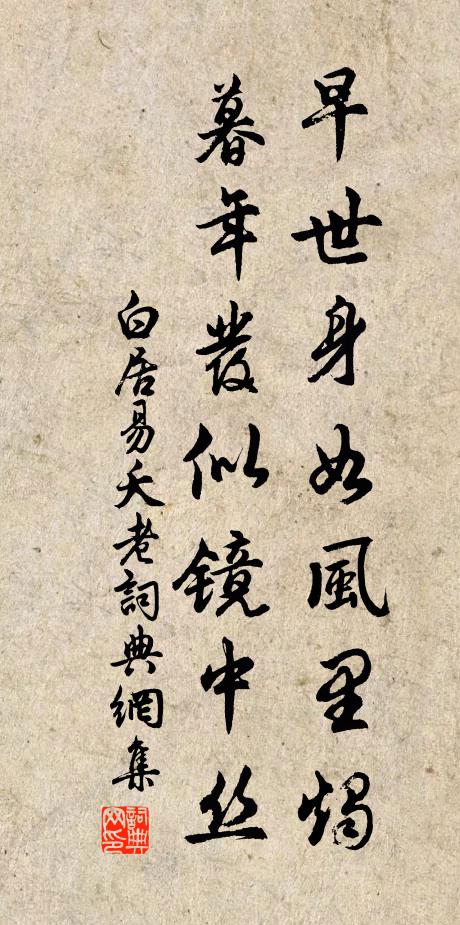 早世身如風里燭
暮年發似鏡中丝
白居易夭老詞典網集
詞典网印